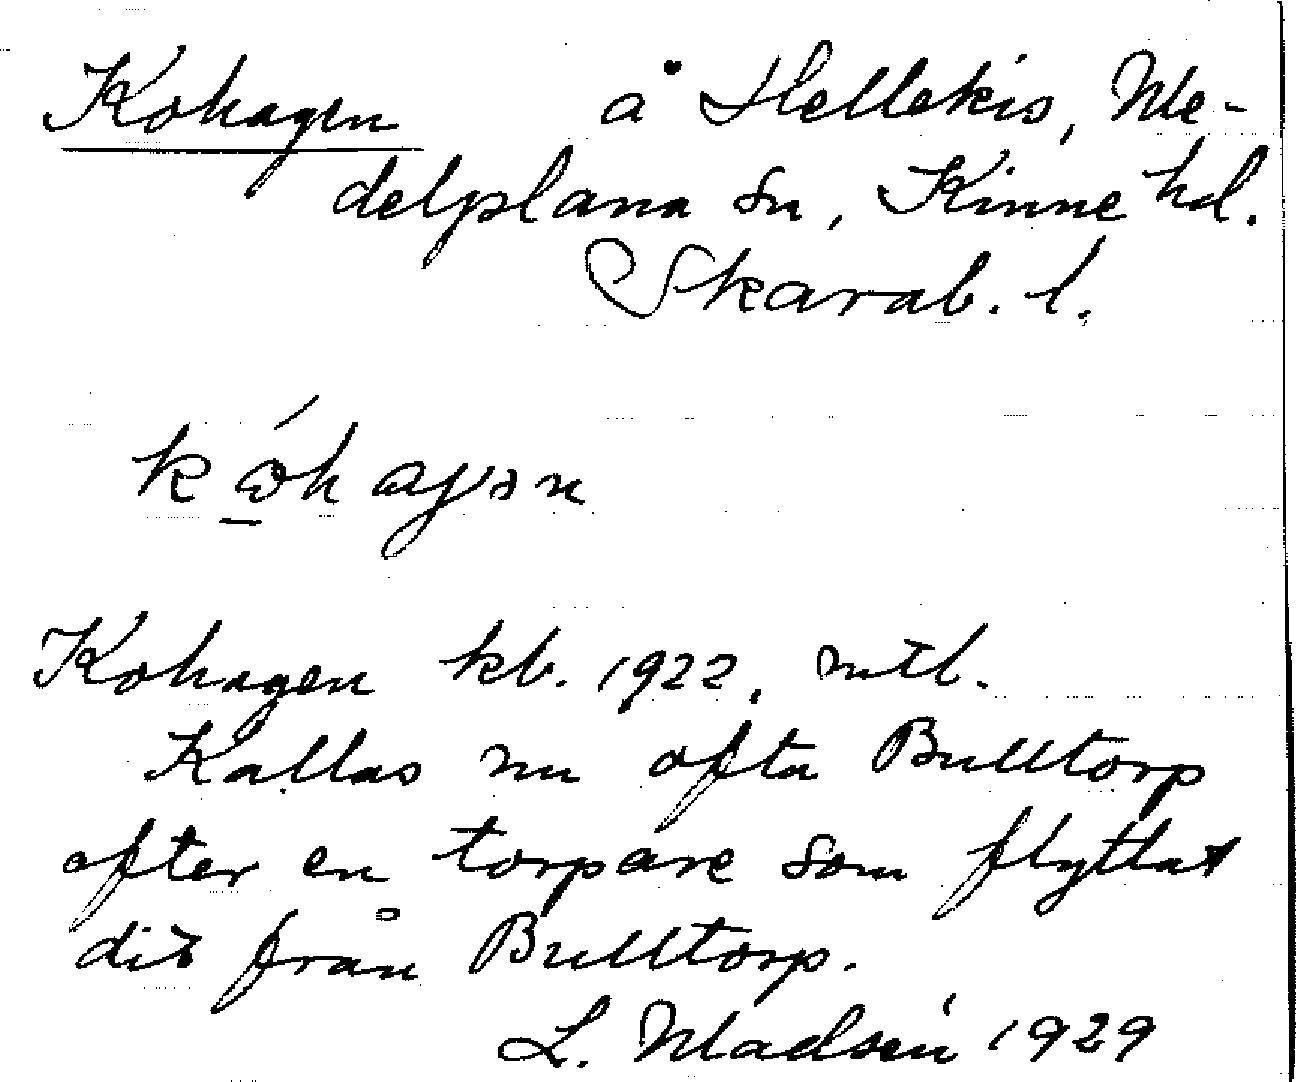 Kohagen å Hellekis, Me-
delplana sn, Kinne hd.
Skarab. l.
Kohagen kb. 1922, mtl.
Kallas nu ofta Bulltorp
efter en torpare som flyttat
dit från Bulltorp.
L. Madsén 1929